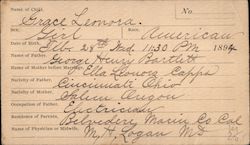 Name of Child, No.
Grace Leonora.
Sex, Race,
Girl American
Date of Birth,
Feb. 28th Wed. 11:30 PM 1894
George Henry Bartlett
Name of Mother before Marriage,
Ella Leonora Capps
Nativity of Father,
Cincinnati Ohio
Nativity of Mother,
Salem Oregon
Occupation of Father,
Electrician
Residence of Parents,
Belvedere Marin Co. Cal
Name of Physician or Midwife,
M. H. Logan MD